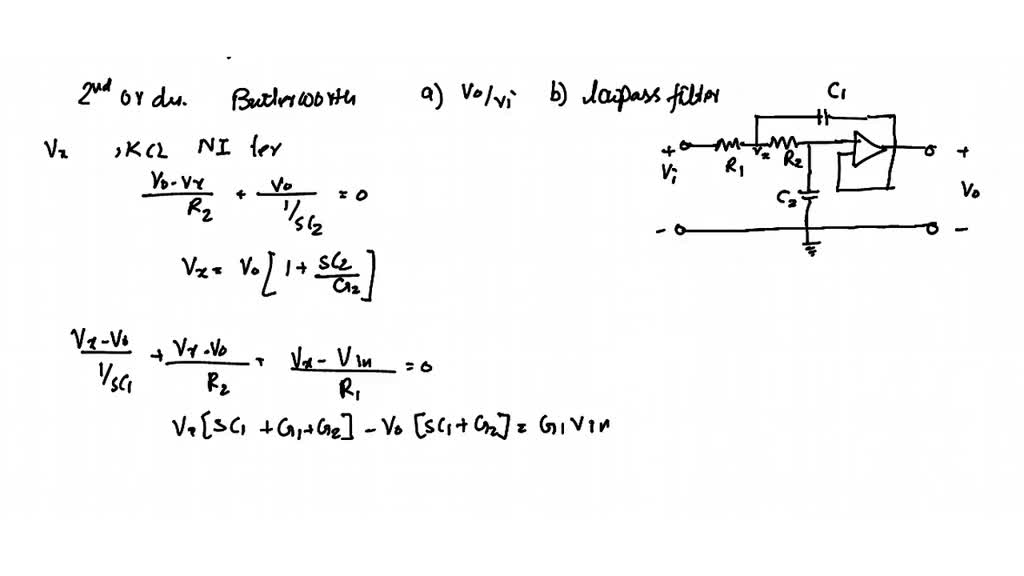 2nd order. Butterworth a) Vo/Vi b) lowpass filter
Vx , KCL NI ter
Vo-Vx/R2 + Vo/1/SC2 = 0
Vx = Vo[1+ SC2/G2]
Vx-Vo/1/SC1 + Vx-Vo/R2 = Vx-Vin/R1 = 0
Vx[SC1 +G1+G2] - Vo[SC1+G2] = G1Vin
C1
+ R1 Vx R2 +
Vi C2 Vo
- -